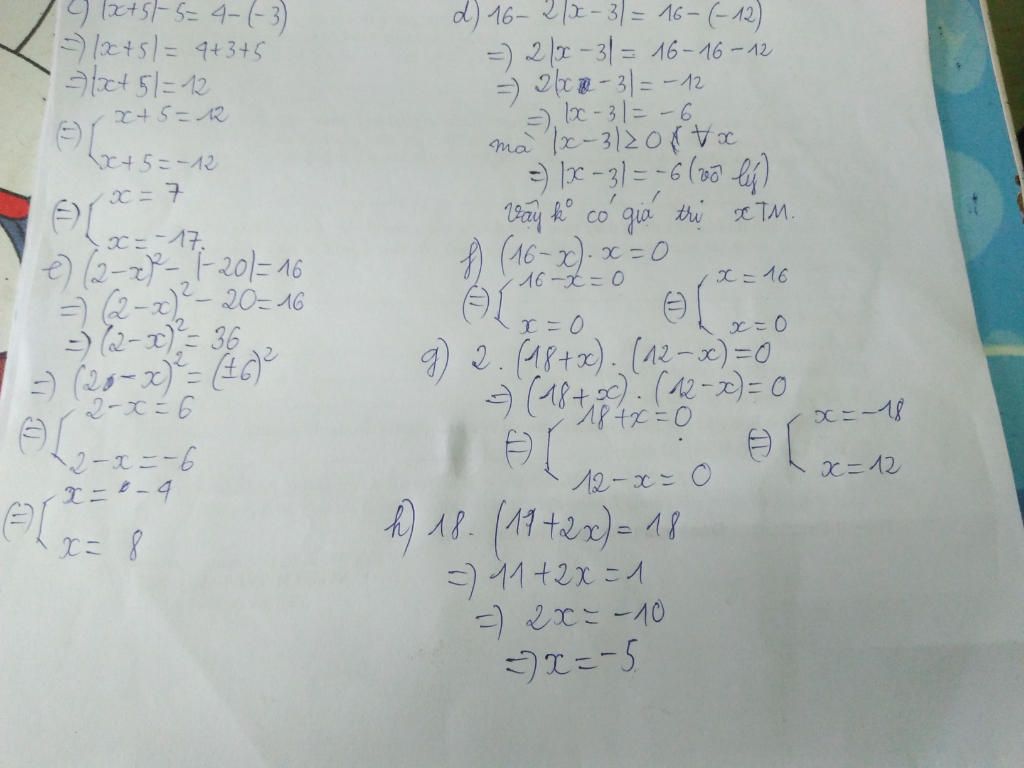 c) |x+5|-5 = 4-(-3)
=) |x+5| = 4+3+5
=) |x+5| = 12
(=) [ x+5 = 12
x+5 = -12
(=) [ x = 7
x = -17.
e) (2-x)² - |-20| = 16
=) (2-x)² - 20 = 16
=) (2-x)² = 36
=) (2-x)² = (±6)²
(=) [ 2-x = 6
2-x = -6
(=) [ x = -4
x = 8
d) 16- 2|x-3| = 16-(-12)
=) 2|x-3| = 16-16-12
=) 2|x-3| = -12
=) |x-3| = -6
mà |x-3| ≥ 0 ∀x
=) |x-3| = -6 (vô lý)
Vậy k° có giá trị x TM.
f) (16-x).x = 0
(=) [ 16-x = 0 (=) [ x = 16
x = 0 x = 0
g) 2.(18+x).(12-x) = 0
=) (18+x).(12-x) = 0
(=) [ 18+x = 0 (=) [ x = -18
12-x = 0 x = 12
h) 18.(11+2x) = 18
=) 11+2x = 1
=) 2x = -10
=) x = -5